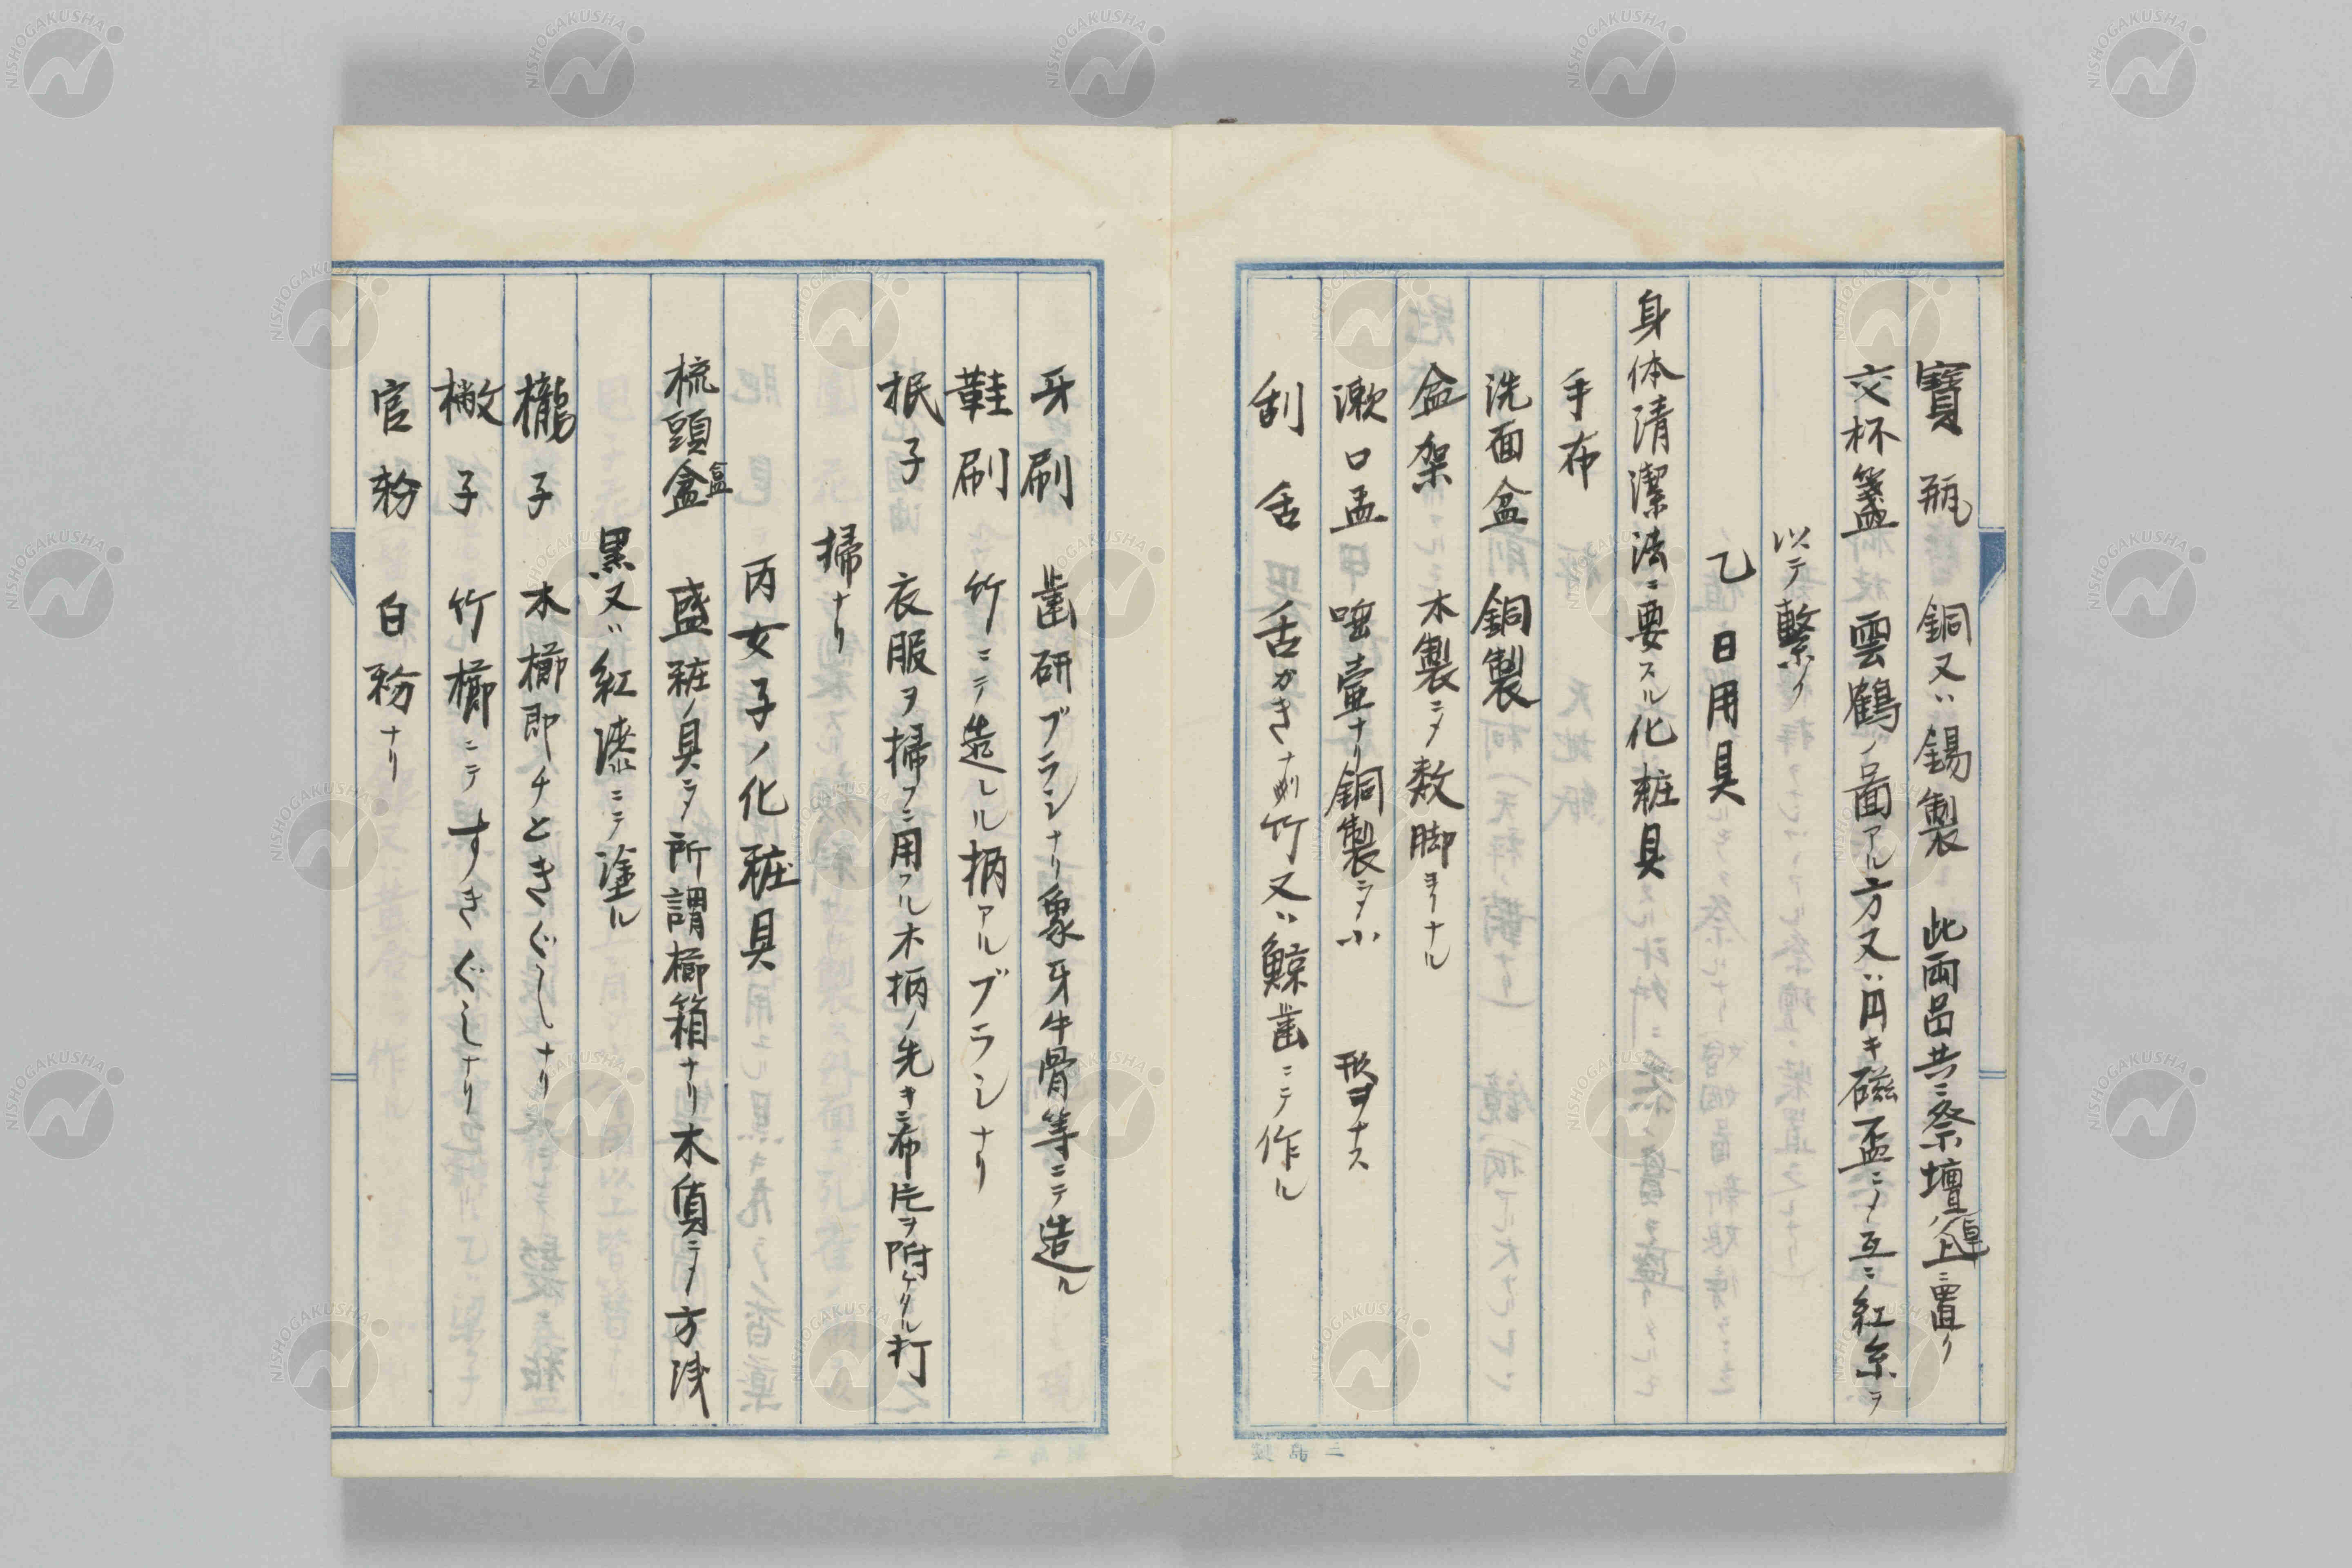 寶瓶 銅又ハ錫製 此両品共ニ祭壇ノ卓上ニ置ク
交杯盞 雲鶴ノ圖アル方又ハ円キ磁盃ニシテ互ニ紅糸ヲ
以テ繋ク
乙 日用具
身体清潔法ニ要スル化粧具
手布
洗面盆 銅製
盆架 木製ニシテ数脚ヨリナル
漱口盂 唾壷ナリ銅製ニシテ小 形ヲナス
刮舌 舌かきナリ 竹又ハ鯨歯ニテ作ル
牙刷 歯研ブラシナリ象牙牛骨等ニテ造ル
鞋刷 竹ニテ造レル柄アルブラシナリ
抿子 衣服ヲ掃フニ用フル木柄ノ先キニ布片ヲ附ケタル打
掃ナリ
丙 女子ノ化粧具
梳頭盒 盛粧ノ具ニシテ所謂櫛箱ナリ木質ニシテ方浅
黒又ハ紅漆ニテ塗ル
櫳子 木櫛即チときぐしナリ
子 竹櫛ニテすきぐしナリ
官粉 白粉ナリ
NISHOGAKUSHA